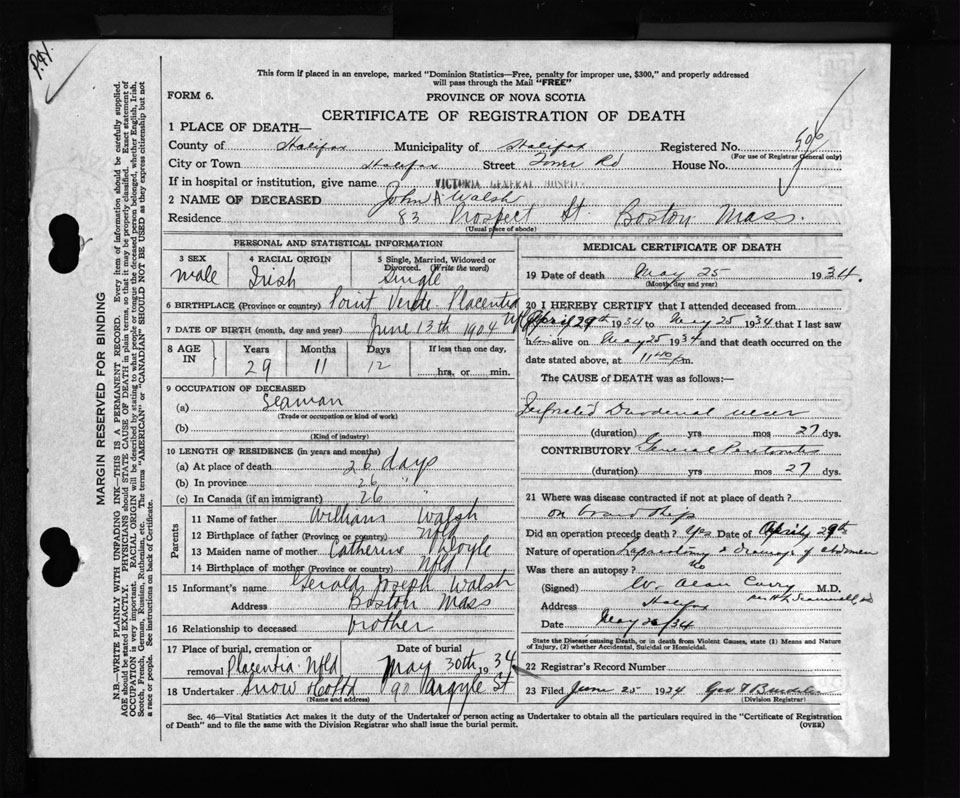 P.H.
This form if placed in an envelope, marked "Dominion Statistics—Free, penalty for improper use, $300," and properly addressed
will pass through the Mail "FREE"
FORM 6.
PROVINCE OF NOVA SCOTIA
CERTIFICATE OF REGISTRATION OF DEATH
1 PLACE OF DEATH—
County of Halifax Municipality of Halifax Registered No. 596
(For use of Registrar General only)
City or Town Halifax Street Tower Rd House No.
If in hospital or institution, give name VICTORIA GENERAL HOSPITAL
2 NAME OF DECEASED John A Walsh
Residence 83 Prospect St. Boston Mass.
(Usual place of abode)
PERSONAL AND STATISTICAL INFORMATION
3 SEX 4 RACIAL ORIGIN 5 Single, Married, Widowed or
Divorced. (Write the word)
male Irish Single
6 BIRTHPLACE (Province or country) Point Verde Placentia Nfld
7 DATE OF BIRTH (month, day and year) June 13th 1904
8 AGE IN Years Months Days If less than one day,
29 11 12 hrs. or min.
9 OCCUPATION OF DECEASED
(a) Seaman
(Trade or occupation or kind of work)
(b)
(Kind of industry)
10 LENGTH OF RESIDENCE (in years and months)
(a) At place of death 26 days
(b) In province 26 "
(c) In Canada (if an immigrant) 26 "
Parents
11 Name of father William Walsh
12 Birthplace of father (Province or country) Nfld
13 Maiden name of mother Catherine
14 Birthplace of mother (Province or country) Nfld
15 Informant's name Gerald Joseph Walsh
Address Boston Mass
16 Relationship to deceased brother
17 Place of burial, cremation or Date of burial
removal Placentia Nfld May 30th 1934
18 Undertaker Snow & Co Ltd 90 Argyle St
MEDICAL CERTIFICATE OF DEATH
19 Date of death May 25 1934.
(Month, day and year)
20 I HEREBY CERTIFY that I attended deceased from
April 29th 1934 to May 25 1934 that I last saw
him alive on May 25 1934 and that death occurred on the
date stated above, at 11:40 p.m.
The CAUSE of DEATH was as follows:—
Perforated Duodenal ulcer
(duration) yrs mos 27 dys.
CONTRIBUTORY General Peritonitis
(duration) yrs mos 27 dys.
21 Where was disease contracted if not at place of death?
on board ship
Did an operation precede death? Yes Date of April 29th
Nature of operation Laparotomy & drainage of abdomen
Was there an autopsy? No
(Signed) W. Alan Curry M.D.
Address Halifax
Date May 26/34
State the Disease causing Death, or in death from Violent Causes, state (1) Means and Nature
of Injury, (2) whether Accidental, Suicidal or Homicidal.
22 Registrar's Record Number
23 Filed June 25 1934 Geo
(Division Registrar)
Sec. 46—Vital Statistics Act makes it the duty of the Undertaker or person acting as Undertaker to obtain all the particulars required in the "Certificate of Registration
of Death" and to file the same with the Division Registrar who shall issue the burial permit.
(OVER)
MARGIN RESERVED FOR BINDING
N.B.—WRITE PLAINLY WITH UNFADING INK—THIS IS A PERMANENT RECORD. Every item of information should be carefully supplied.
AGE should be stated EXACTLY. PHYSICIANS should STATE CAUSE OF DEATH in plain terms, so that it may be properly classified. Exact statement of
OCCUPATION is very important. RACIAL ORIGIN will be described by stating to what people or tongue the deceased person belonged, whether English, Irish,
Scotch, French, German, Russian, Ruthenian, etc. The terms "AMERICAN" or "CANADIAN" SHOULD NOT BE USED as they express citizenship but not
a race or people. See instructions on back of Certificate.